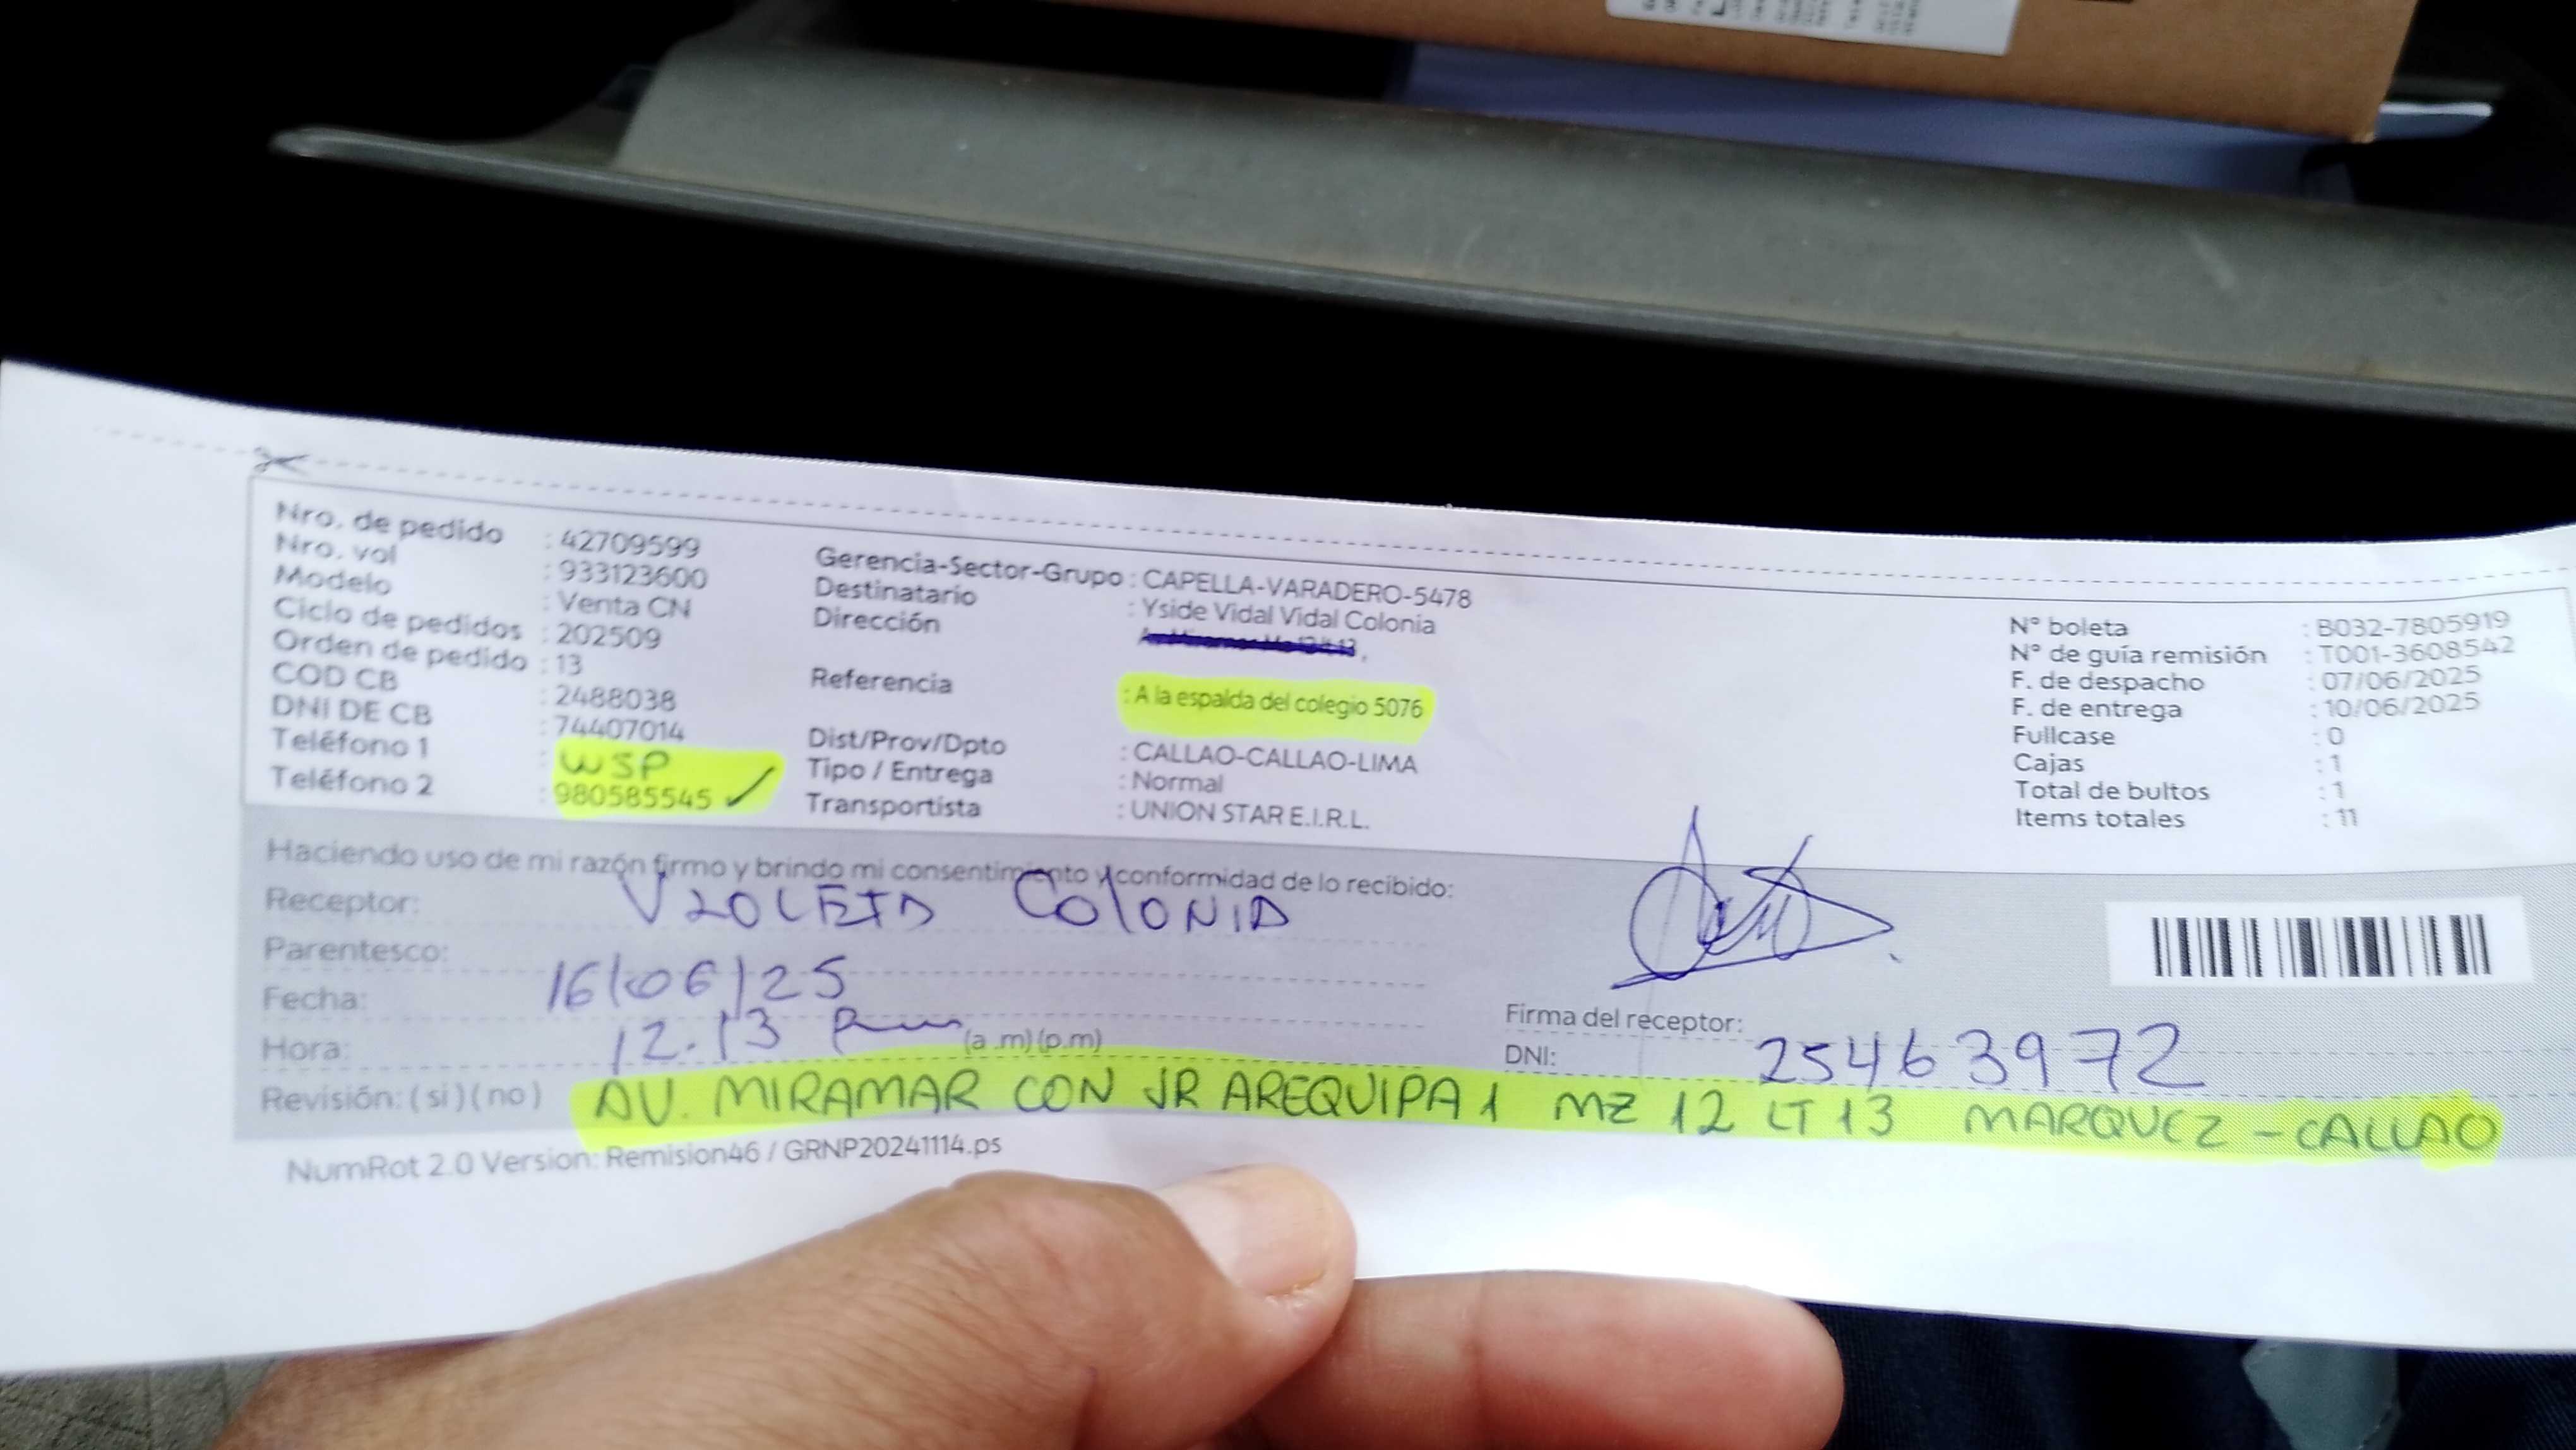 Nro. de pedido : 42709599
Nro. vol : 933123600
Modelo : Venta CN
Ciclo de pedidos : 202509
Orden de pedido : 13
COD CB : 2488038
DNI DE CB : 74407014
Teléfono 1 : WSP
Teléfono 2 : 980585545 ✓
Gerencia-Sector-Grupo : CAPELLA-VARADERO-5478
Destinatario : Yside Vidal Vidal Colonia
Dirección
Referencia : A la espalda del colegio 5076
Dist/Prov/Dpto : CALLAO-CALLAO-LIMA
Tipo / Entrega : Normal
Transportista : UNION STAR E.I.R.L.
N° boleta : B032-7805919
N° de guía remisión : T001-3608542
F. de despacho : 07/06/2025
F. de entrega : 10/06/2025
Fullcase : 0
Cajas : 1
Total de bultos : 1
Items totales : 11
Haciendo uso de mi razón firmo y brindo mi consentimiento y conformidad de lo recibido:
Receptor: VIOLETA COLONIA
Parentesco:
Fecha: 16/06/25
Hora: 12.13 pm (a.m)(p.m)
Firma del receptor:
DNI: 25463972
Revisión: (si)(no) AV. MIRAMAR CON JR AREQUIPA 1 MZ 12 LT 13 MARQUEZ - CALLAO
NumRot 2.0 Version: Remision46 / GRNP20241114.ps